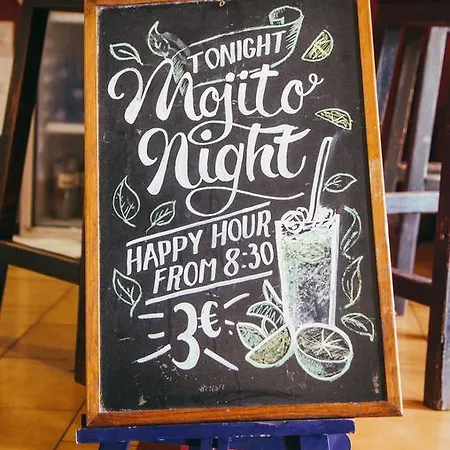 TONIGHT
Mojito
Night
HAPPY HOUR
FROM 8:30
3€